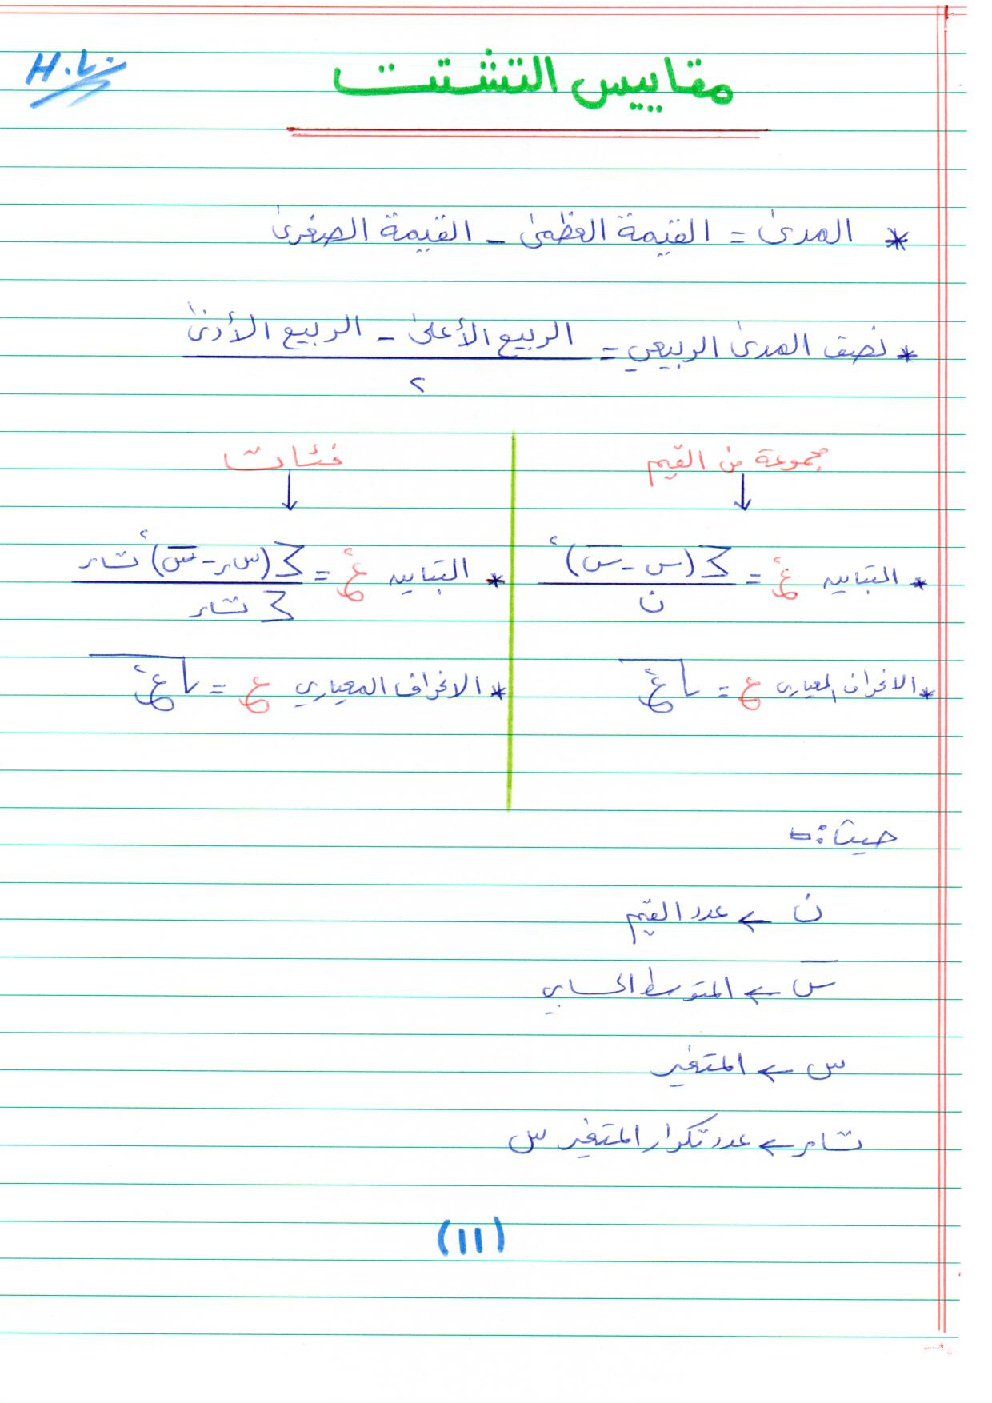 مقاييس التشتت
* المدى = القيمة العظمى - القيمة الصغرى
* نصف المدى الربيعي = (الربيع الأعلى - الربيع الأدنى) / ٢
مجموعة من القيم
↓
* التباين ع٢ = ∑(س - س̄)٢ / ن
* الانحراف المعياري ع = √ع٢
فئات
↓
* التباين ع٢ = ∑(سر - س̄)٢ تكر / ∑ تكر
* الانحراف المعياري ع = √ع٢
حيث :-
ن ← عدد القيم
س̄ ← المتوسط الحسابي
س ← المتغير
تكر ← عدد تكرار المتغير س
(١١)